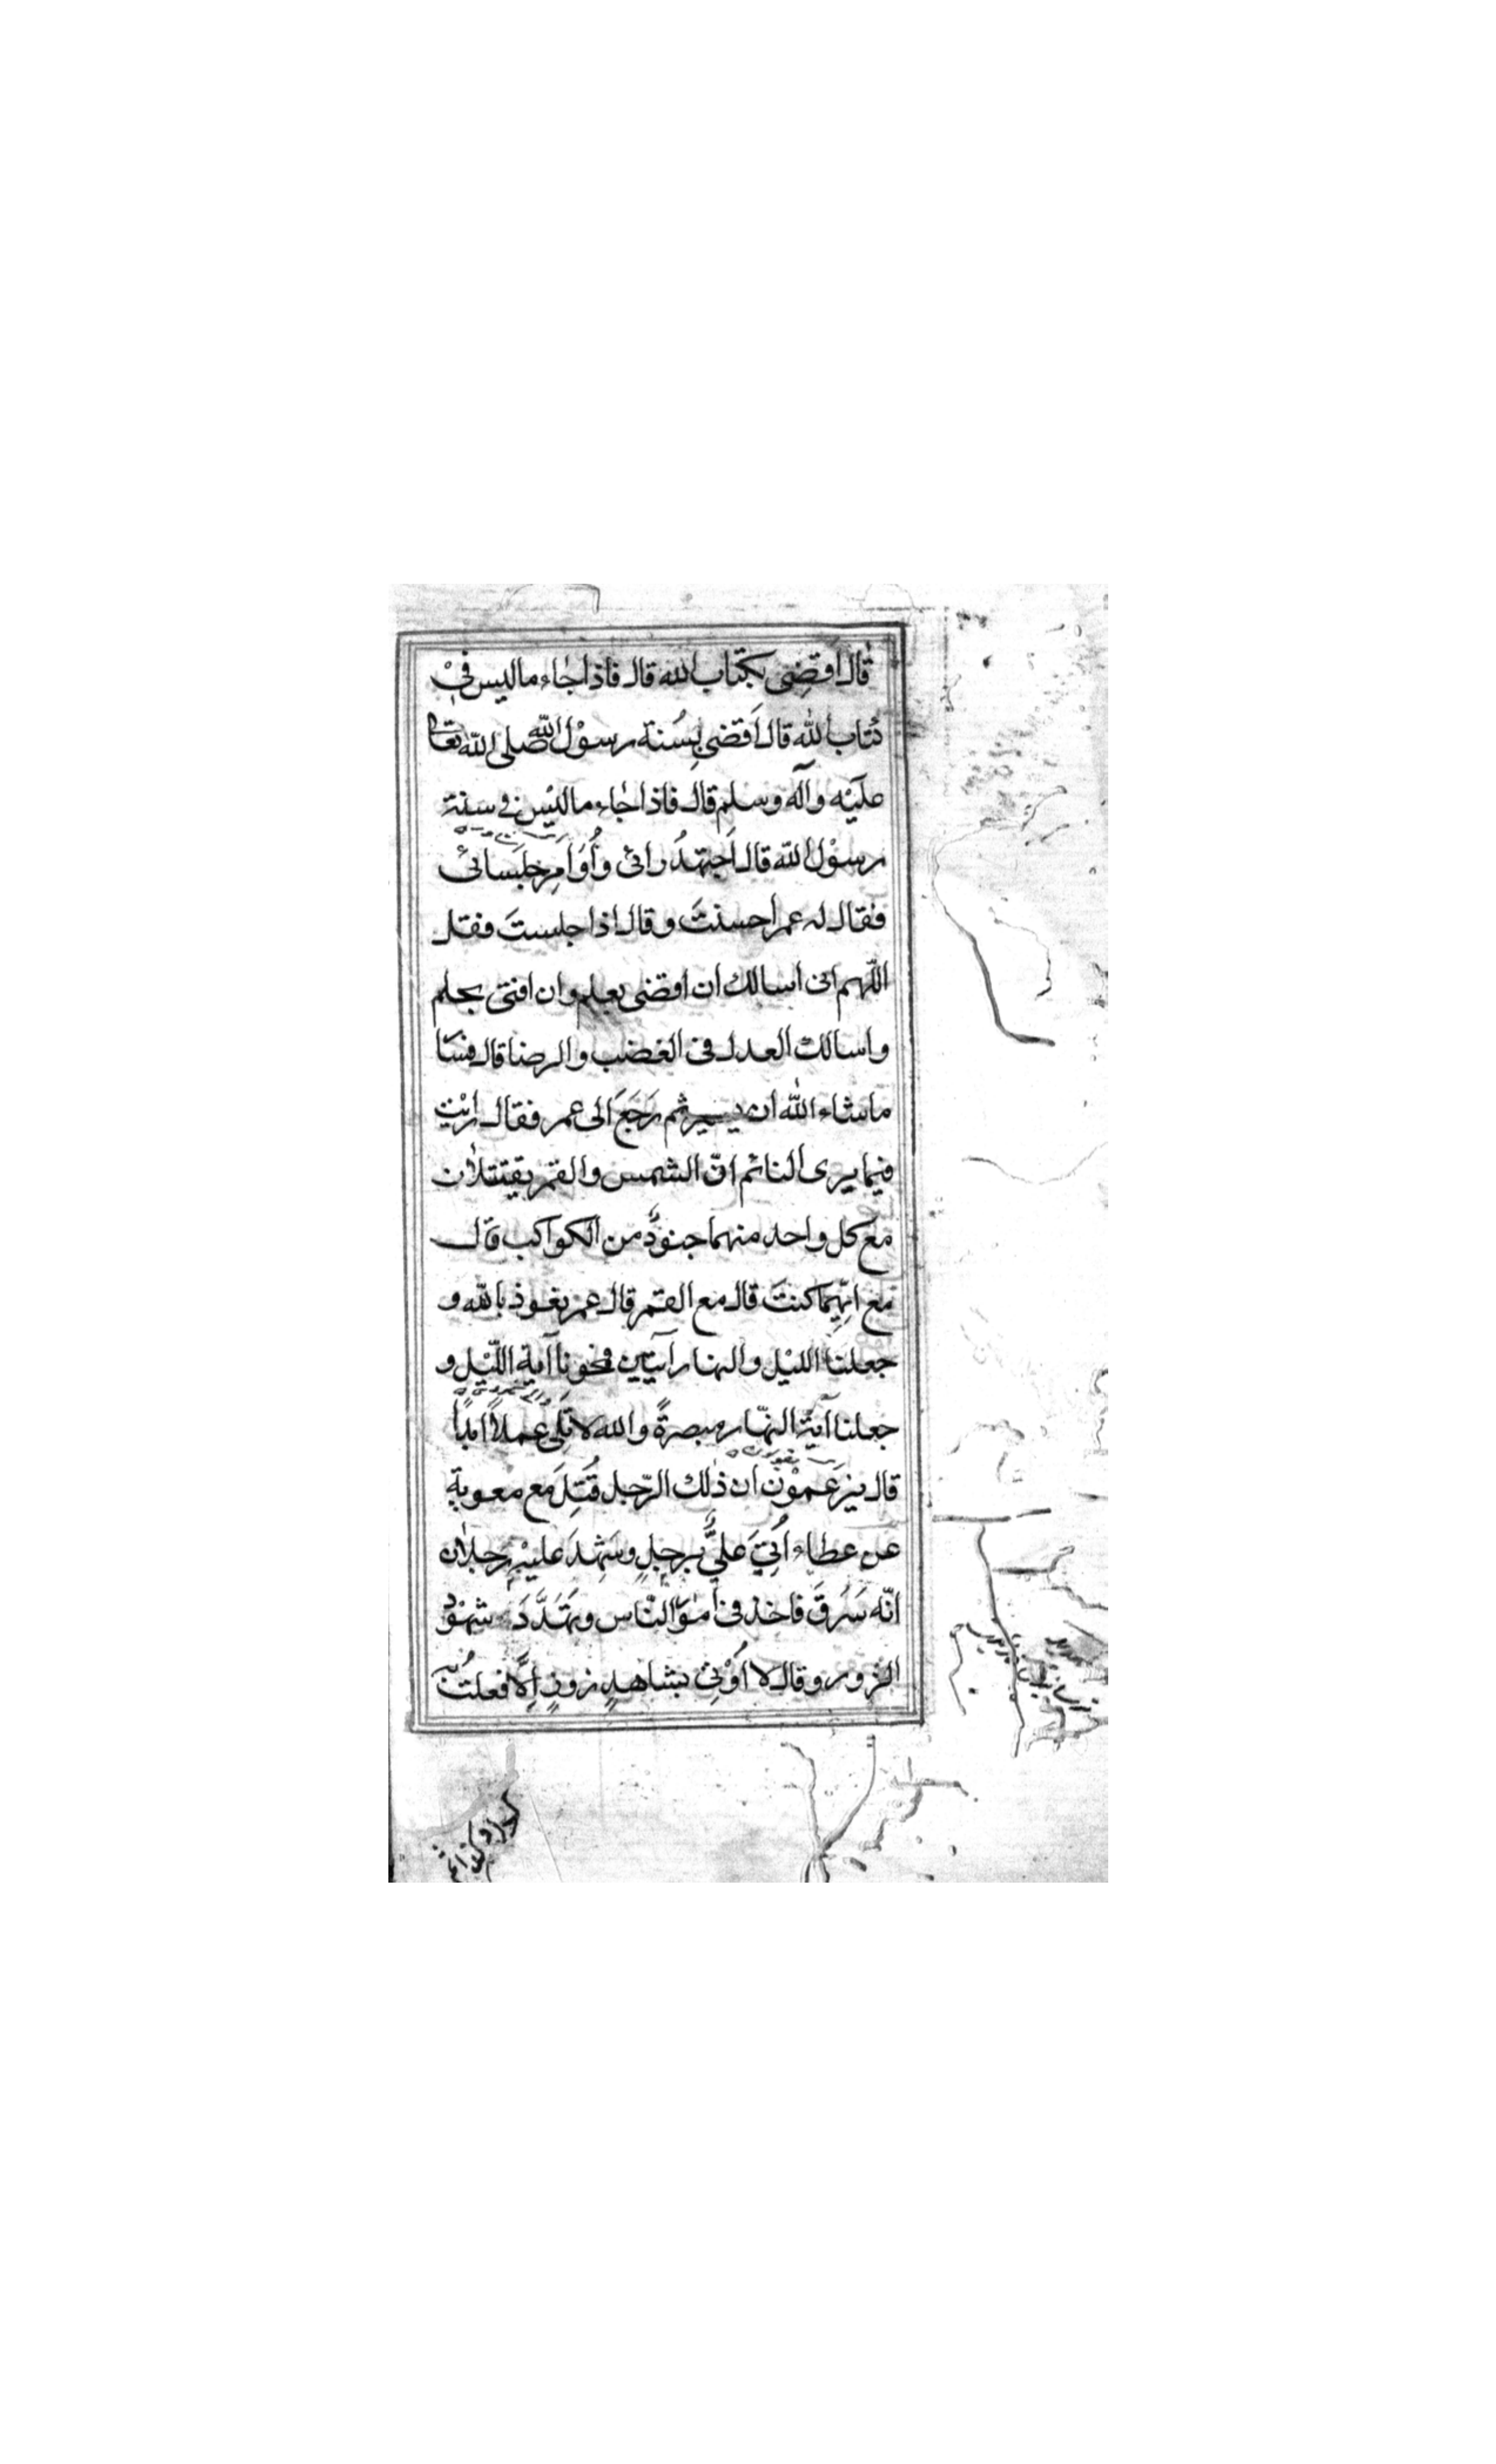 قال اقضى بكتاب الله قال فاذا جاء ما ليس فى
كتاب الله قال اَقضى بِسُنة رسوْل الله صلى الله تعالى
عليْه وآله وسلم قال فاذا جاء ما ليْس فى سنة
رسوْل الله قال اَجتهدُ رائى واُوَامِر جلَسائى
فقال له عمر احسنتَ وقال اذا جلستَ فقل
اللّهم انى اسالك ان اقضى بعلم وان افتى بحلم
واسالك العدل فى الغضب والرضا قال فسَا
ماشاء الله ان يسير ثم رَجَعَ الى عمر فقال رايْت
فيما يرى النائم انّ الشمس والقمر يقتتلان
مع كل واحد منهما جنودٌ من الكواكب قال
مع ايّهما كنتَ قال مع القمر قال عمر نعوذ بالله و
جعلنا الليْل والنهار آيتين فمحونا آية اللّيْل و
جعلنا آيةَ النهّار مبصرةً والله لا تلَى عملاً ابداً
قال يزعموْن ان ذٰلك الرّجل قُتِلَ مع معٰوية
عن عطاء اُتِيَ عليٌّ برجلٍ وشَهِدَ عليْهِ رجلان
انّه سَرَقَ فاخذ فى امْوَالنّاس وتَهَدَّدَ شهوْد
الزور وقال لا اُوْتى بشاهدِ زورٍ اِلّا فعلتُ بّه